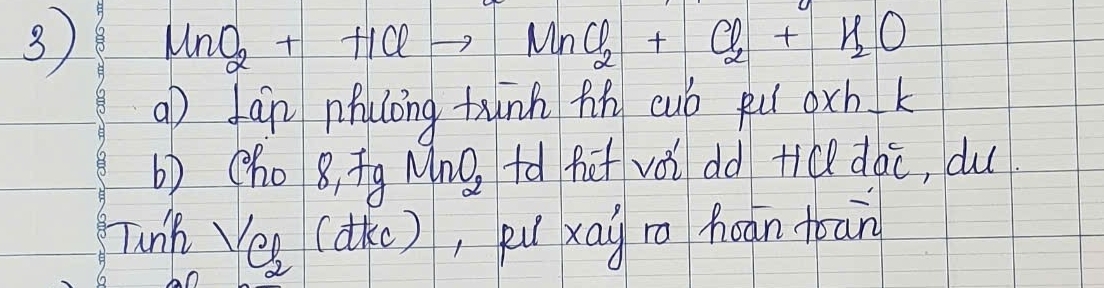 3) MnO₂ + HCl → MnCl₂ + Cl₂ + H₂O
a) Lập phương trình hh của pư oxh_k
b) Cho 8,7g MnO₂ td hết với dd HCl đặc, dư.
Tính VCl₂ (đkc), pư xảy ra hoàn toàn